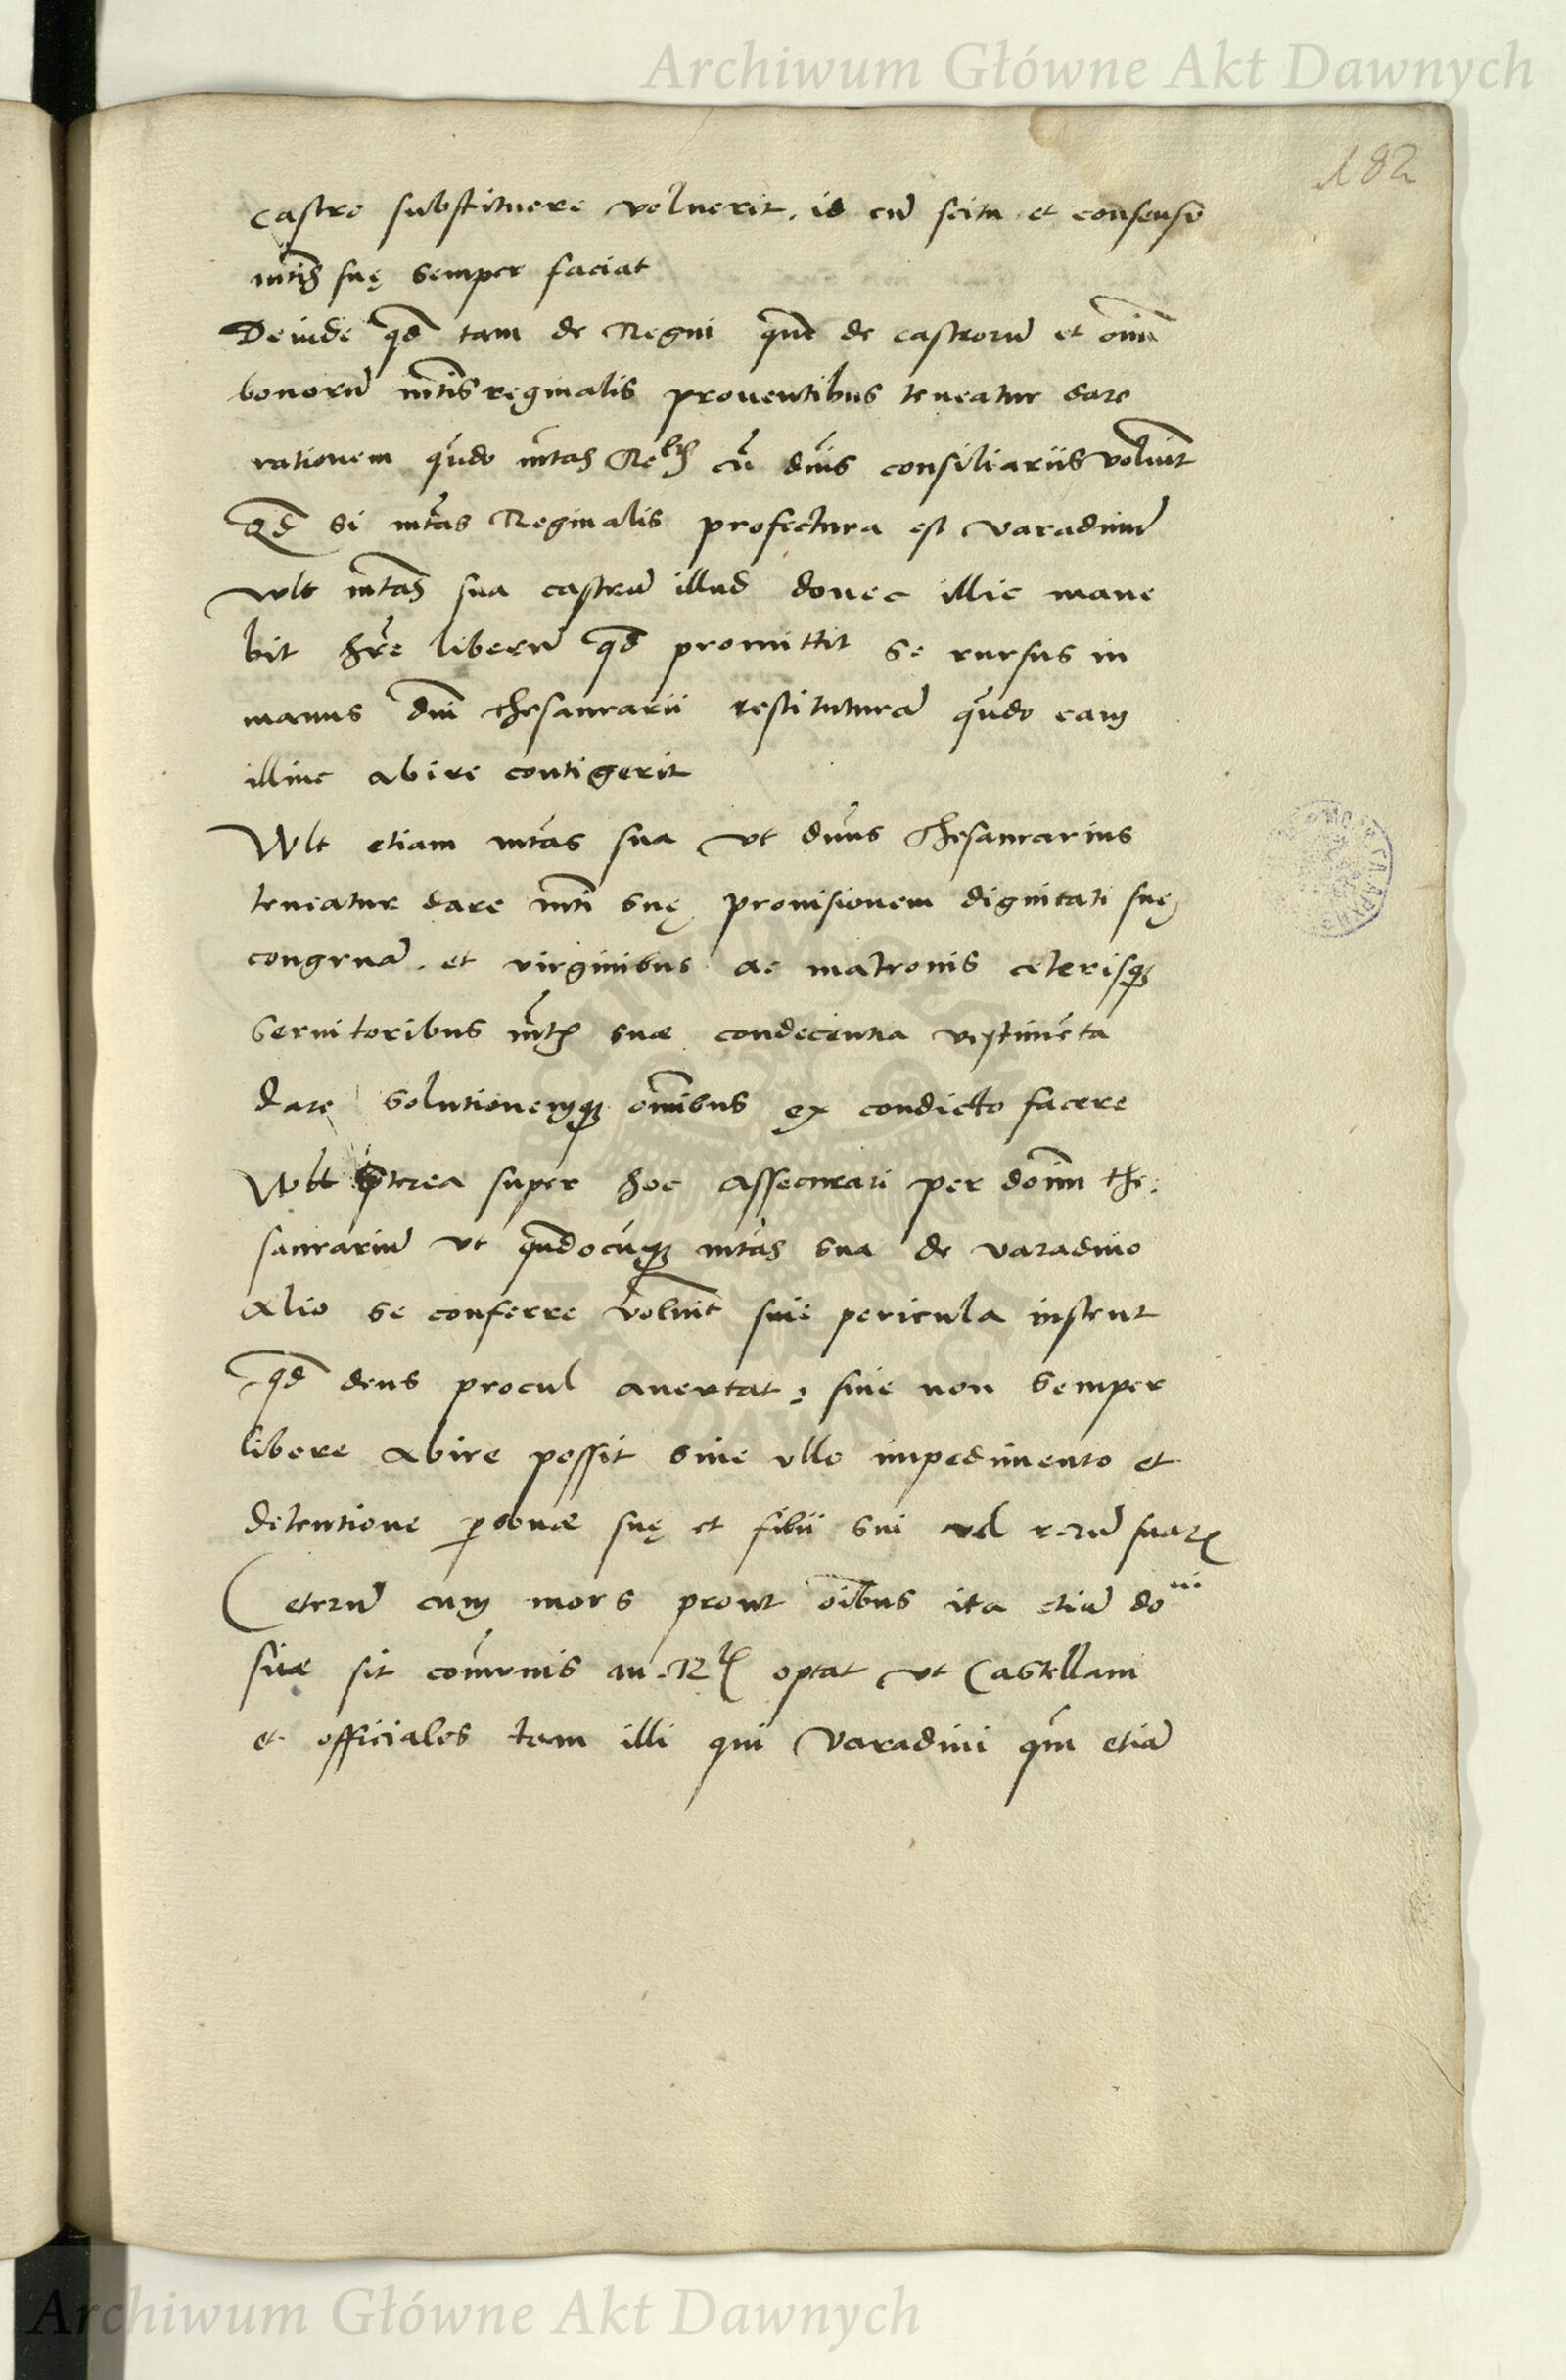 Archiwum Główne Akt Dawnych
182
castro substituere voluerit. id cū scitu et consensu
mtis suę semper faciat
Deinde qd tam de Regni quā de castrorū et oīm
bonorū mtis reginalis prouentibus teneatur dare
rationem qūdo mtas Relis cū dnīs consiliariis voluīt
Qd si mtas Reginalis profectura est varadinū
wlt mtas sua castrū illud donec illic mane
bit hr̄e liberū qd promittit se rursus in
manus dnī thesaurarii restituturā qūdo eam
illinc abire contigerit
Wlt etiam mtas sua vt dnūs Thesaurarius
teneatur dare mti suę prouisionem dignitati suę
congruā. et virginibus ac matronis ceterisq3
seruitoribus mtis suæ condecentia vestimēta
dare solutionemq3 omībus ex condicto facere
Wlt p̄terea super hoc assecurari per domī the:
saurariū vt qūdocūq3 mtas sua de varadino
alio se conferre voluīt siue pericula instent
qd deus procul auertat: siue non semper
libere abire possit sine ullo impedimento et
detentione p̱sonæ suę et filii sui vel rerū suarꝫ
Ceterū cum mors prout oībus ita etiā do
suæ sit com̄unis m. Rlis optat vt Castellani
et officiales tam illi qui Varadini qm̄ etiā
Archiwum Główne Akt Dawnych